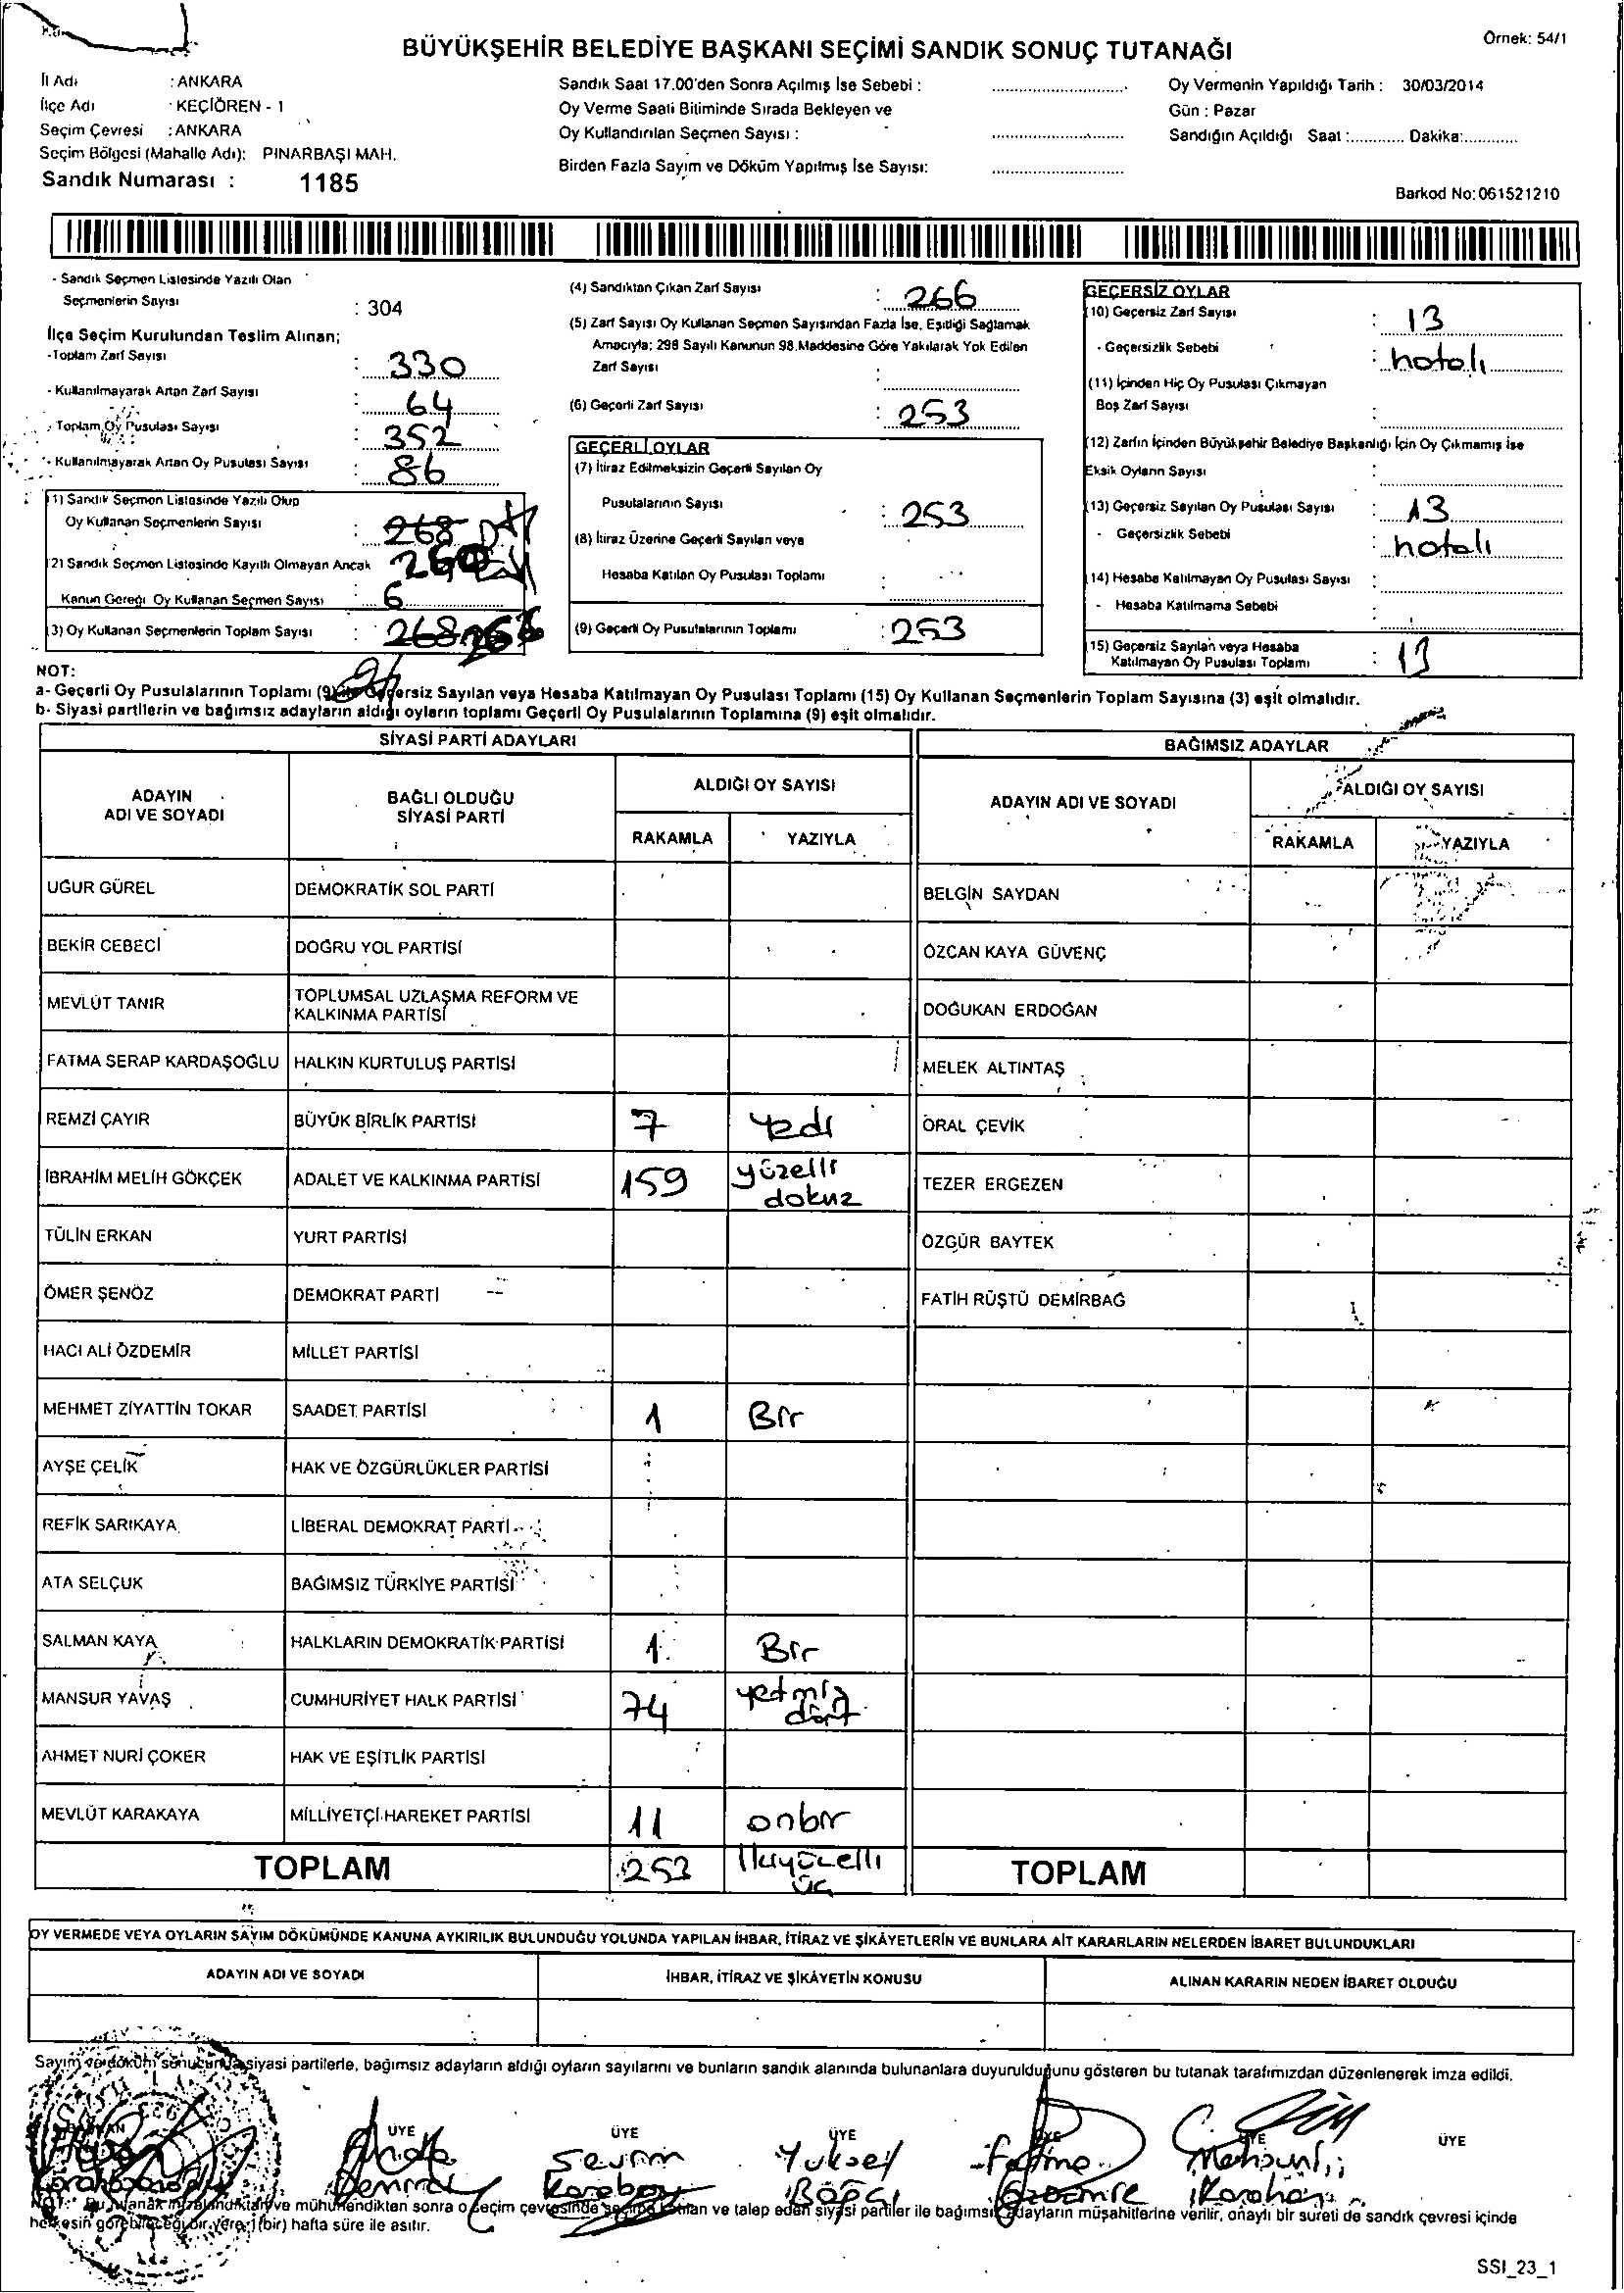 Örnek: 54/1
BÜYÜKŞEHİR BELEDİYE BAŞKANI SEÇİMİ SANDIK SONUÇ TUTANAĞI
İl Adı : ANKARA
İlçe Adı : KEÇİÖREN - 1
Seçim Çevresi : ANKARA
Seçim Bölgesi (Mahalle Adı): PINARBAŞI MAH.
Sandık Numarası : 1185
Sandık Saat 17.00'den Sonra Açılmış İse Sebebi :
Oy Verme Saati Bitiminde Sırada Bekleyen ve
Oy Kullandırılan Seçmen Sayısı :
Birden Fazla Sayım ve Döküm Yapılmış İse Sayısı:
Oy Vermenin Yapıldığı Tarih : 30/03/2014
Gün : Pazar
Sandığın Açıldığı Saat :............ Dakika:.............
Barkod No: 061521210
- Sandık Seçmen Listesinde Yazılı Olan
Seçmenlerin Sayısı : 304
İlçe Seçim Kurulundan Teslim Alınan;
-Toplam Zarf Sayısı : 330
- Kullanılmayarak Artan Zarf Sayısı : 64
- Toplam Oy Pusulası Sayısı : 352
- Kullanılmayarak Artan Oy Pusulası Sayısı : 86
(1) Sandık Seçmen Listesinde Yazılı Olup
Oy Kullanan Seçmenlerin Sayısı : 268
260
(2) Sandık Seçmen Listesinde Kayıtlı Olmayan Ancak
Kanun Gereği Oy Kullanan Seçmen Sayısı : 6
(3) Oy Kullanan Seçmenlerin Toplam Sayısı : 268 266
(4) Sandıktan Çıkan Zarf Sayısı : 266
(5) Zarf Sayısı Oy Kullanan Seçmen Sayısından Fazla İse, Eşitliği Sağlamak
Amacıyla; 298 Sayılı Kanunun 98.Maddesine Göre Yakılarak Yok Edilen
Zarf Sayısı :
(6) Geçerli Zarf Sayısı : 253
GEÇERLİ OYLAR
(7) İtiraz Edilmeksizin Geçerli Sayılan Oy
Pusulalarının Sayısı : 253
(8) İtiraz Üzerine Geçerli Sayılan veya
Hesaba Katılan Oy Pusulası Toplamı :
(9) Geçerli Oy Pusulalarının Toplamı : 253
GEÇERSİZ OYLAR
(10) Geçersiz Zarf Sayısı : 13
- Geçersizlik Sebebi : hatalı
(11) İçinden Hiç Oy Pusulası Çıkmayan
Boş Zarf Sayısı :
(12) Zarfın İçinden Büyükşehir Belediye Başkanlığı İçin Oy Çıkmamış İse
Eksik Oyların Sayısı :
(13) Geçersiz Sayılan Oy Pusulası Sayısı : 13
- Geçersizlik Sebebi : hatalı
(14) Hesaba Katılmayan Oy Pusulası Sayısı :
- Hesaba Katılmama Sebebi :
(15) Geçersiz Sayılan veya Hesaba
Katılmayan Oy Pusulası Toplamı : 13
NOT:
a- Geçerli Oy Pusulalarının Toplamı (9) ile Geçersiz Sayılan veya Hesaba Katılmayan Oy Pusulası Toplamı (15) Oy Kullanan Seçmenlerin Toplam Sayısına (3) eşit olmalıdır.
b- Siyasi partilerin ve bağımsız adayların aldığı oyların toplamı Geçerli Oy Pusulalarının Toplamına (9) eşit olmalıdır.
SİYASİ PARTİ ADAYLARI
ADAYIN ADI VE SOYADI
BAĞLI OLDUĞU SİYASİ PARTİ
ALDIĞI OY SAYISI
RAKAMLA YAZIYLA
UĞUR GÜREL DEMOKRATİK SOL PARTİ
BEKİR CEBECİ DOĞRU YOL PARTİSİ
MEVLÜT TANIR TOPLUMSAL UZLAŞMA REFORM VE KALKINMA PARTİSİ
FATMA SERAP KARDAŞOĞLU HALKIN KURTULUŞ PARTİSİ
REMZİ ÇAYIR BÜYÜK BİRLİK PARTİSİ 7 yedi
İBRAHİM MELİH GÖKÇEK ADALET VE KALKINMA PARTİSİ 159 yüzelli dokuz
TÜLİN ERKAN YURT PARTİSİ
ÖMER ŞENÖZ DEMOKRAT PARTİ
HACI ALİ ÖZDEMİR MİLLET PARTİSİ
MEHMET ZİYATTİN TOKAR SAADET PARTİSİ 1 Bir
AYŞE ÇELİK HAK VE ÖZGÜRLÜKLER PARTİSİ
REFİK SARIKAYA LİBERAL DEMOKRAT PARTİ
ATA SELÇUK BAĞIMSIZ TÜRKİYE PARTİSİ
SALMAN KAYA HALKLARIN DEMOKRATİK PARTİSİ 1 Bir
MANSUR YAVAŞ CUMHURİYET HALK PARTİSİ 74 yetmiş dört
AHMET NURİ ÇOKER HAK VE EŞİTLİK PARTİSİ
MEVLÜT KARAKAYA MİLLİYETÇİ HAREKET PARTİSİ 11 onbir
TOPLAM 253 İkiyüzelli üç
BAĞIMSIZ ADAYLAR
ADAYIN ADI VE SOYADI
ALDIĞI OY SAYISI
RAKAMLA YAZIYLA
BELGİN SAYDAN
ÖZCAN KAYA GÜVENÇ
DOĞUKAN ERDOĞAN
MELEK ALTINTAŞ
ORAL ÇEVİK
TEZER ERGEZEN
ÖZGÜR BAYTEK
FATİH RÜŞTÜ DEMİRBAĞ
TOPLAM
OY VERMEDE VEYA OYLARIN SAYIM DÖKÜMÜNDE KANUNA AYKIRILIK BULUNDUĞU YOLUNDA YAPILAN İHBAR, İTİRAZ VE ŞİKÂYETLERİN VE BUNLARA AİT KARARLARIN NELERDEN İBARET BULUNDUKLARI
ADAYIN ADI VE SOYADI İHBAR, İTİRAZ VE ŞİKÂYETİN KONUSU ALINAN KARARIN NEDEN İBARET OLDUĞU
Sayım ve döküm sonucunda siyasi partilerle, bağımsız adayların aldığı oyların sayılarını ve bunların sandık alanında bulunanlara duyurulduğunu gösteren bu tutanak tarafımızdan düzenlenerek imza edildi.
ÜYE ÜYE ÜYE ÜYE ÜYE ÜYE
Yuksel
Fatma
NOT: Bu tutanak imzalandıktan ve mühürlendikten sonra o seçim çevresinde seçime katılan ve talep eden siyasi partiler ile bağımsız adayların müşahitlerine verilir, onaylı bir sureti de sandık çevresi içinde
herkesin görebileceği bir yere 1 (bir) hafta süre ile asılır.
SSI_23_1